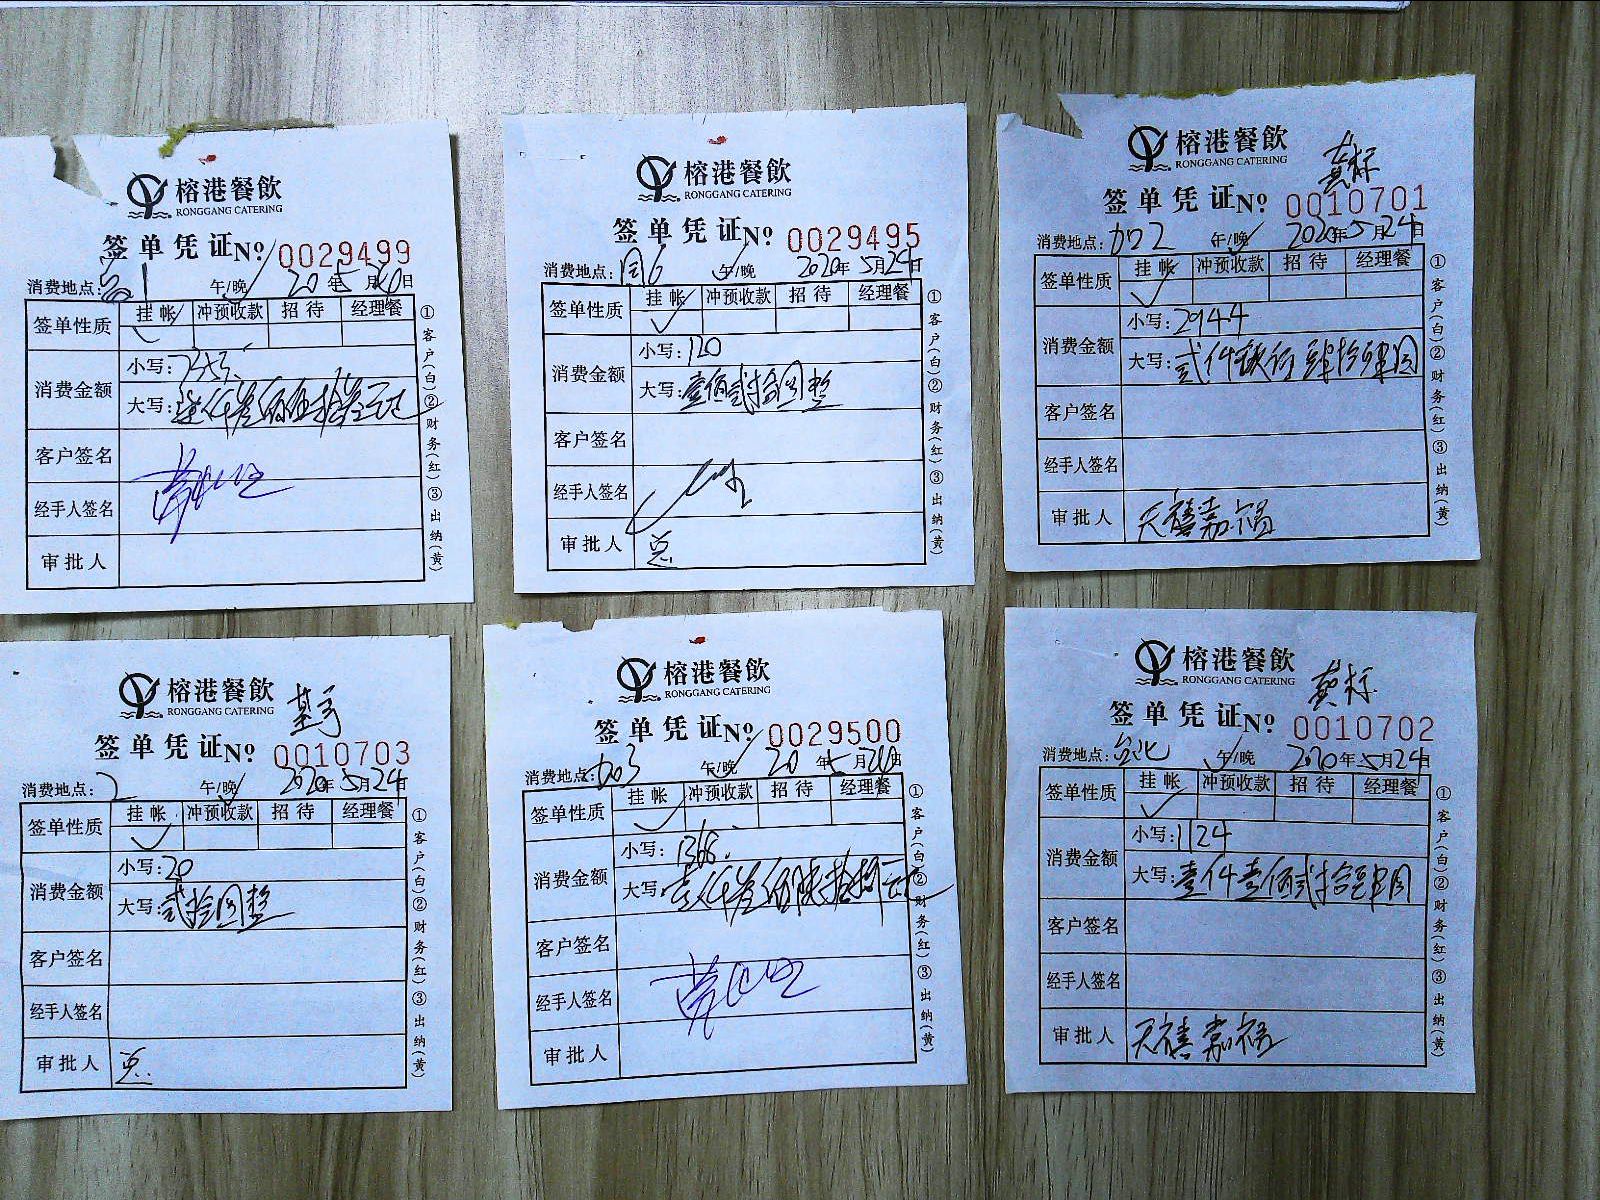 榕港餐飲
RONGGANG CATERING
签单凭证No 0029499
消费地点: 午/晚 20 年5月 日
签单性质 挂帐 冲预收款 招待 经理餐
消费金额
小写:
大写:
客户签名
经手人签名
审批人
①客户(白)②财务(红)③出纳(黄)
榕港餐飲
RONGGANG CATERING
签单凭证No 0029495
消费地点: 午/晚 2020年5月24日
签单性质 挂帐 冲预收款 招待 经理餐
消费金额
小写:120
大写:壹佰贰拾圆整
客户签名
经手人签名
审批人
①客户(白)②财务(红)③出纳(黄)
榕港餐飲
RONGGANG CATERING
签单凭证No 0010701
消费地点: 午/晚 2020年5月24日
签单性质 挂帐 冲预收款 招待 经理餐
消费金额
小写:2944
大写:贰仟玖佰肆拾肆圆
客户签名
经手人签名
审批人 天禧嘉福
①客户(白)②财务(红)③出纳(黄)
榕港餐飲
RONGGANG CATERING
签单凭证No 0010703
消费地点:2 午/晚 2020年5月24日
签单性质 挂帐 冲预收款 招待 经理餐
消费金额
小写:20
大写:贰拾圆整
客户签名
经手人签名
审批人
①客户(白)②财务(红)③出纳(黄)
榕港餐飲
RONGGANG CATERING
签单凭证No 0029500
消费地点: 午/晚 20 年5月 日
签单性质 挂帐 冲预收款 招待 经理餐
消费金额
小写:1368
大写:壹仟叁佰陆拾捌元
客户签名
经手人签名
审批人
①客户(白)②财务(红)③出纳(黄)
榕港餐飲
RONGGANG CATERING
签单凭证No 0010702
消费地点:台北 午/晚 2020年5月24日
签单性质 挂帐 冲预收款 招待 经理餐
消费金额
小写:1124
大写:壹仟壹佰贰拾肆圆
客户签名
经手人签名
审批人 天禧嘉福
①客户(白)②财务(红)③出纳(黄)